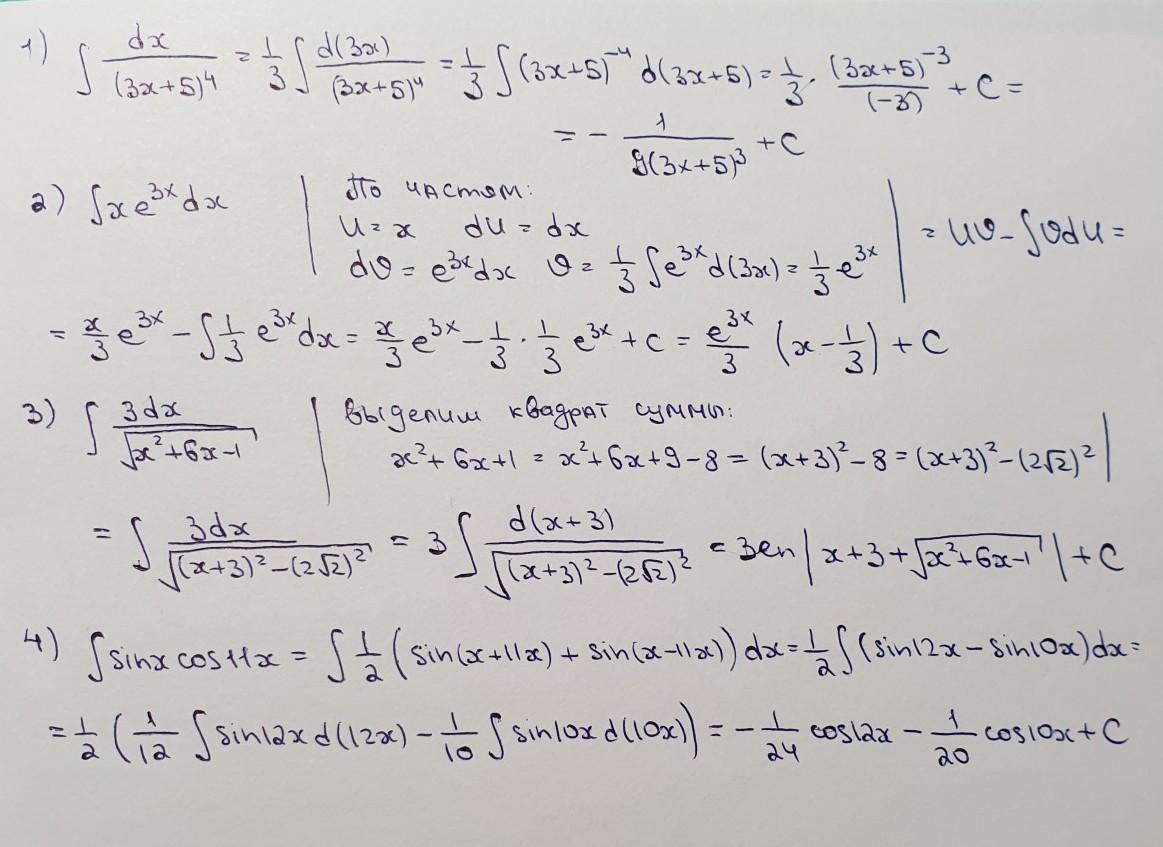 1) ∫ dx/(3x+5)⁴ = 1/3 ∫ d(3x)/(3x+5)⁴ = 1/3 ∫ (3x+5)⁻⁴ d(3x+5) = 1/3 · (3x+5)⁻³/(-3) + C =
= - 1/9(3x+5)³ + C
2) ∫xe³ˣdx | По частям:
u = x du = dx
dv = e³ˣdx v = 1/3 ∫e³ˣd(3x) = 1/3 e³ˣ | = uv - ∫vdu =
= x/3 e³ˣ - ∫ 1/3 e³ˣdx = x/3 e³ˣ - 1/3 · 1/3 e³ˣ + C = e³ˣ/3 (x - 1/3) + C
3) ∫ 3dx/√(x²+6x-1) | Выделим квадрат суммы:
x²+6x+1 = x²+6x+9-8 = (x+3)²-8 = (x+3)²-(2√2)² |
= ∫ 3dx/√((x+3)²-(2√2)²) = 3 ∫ d(x+3)/√((x+3)²-(2√2)²) = 3ln|x+3+√(x²+6x-1)| + C
4) ∫sinx cos11x = ∫ 1/2 (sin(x+11x) + sin(x-11x)) dx = 1/2 ∫(sin12x - sin10x)dx =
= 1/2 (1/12 ∫ sin12x d(12x) - 1/10 ∫ sin10x d(10x)) = - 1/24 cos12x - 1/20 cos10x + C